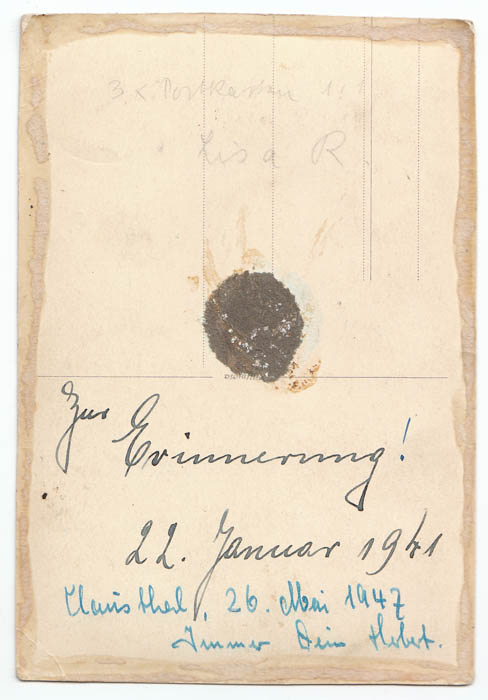 3 x Postkarten 1!
Lisa R.
Zur
Erinnerung!
22. Januar 1941
Clausthal, 26. Mai 1947
Immer Dein Herbert.